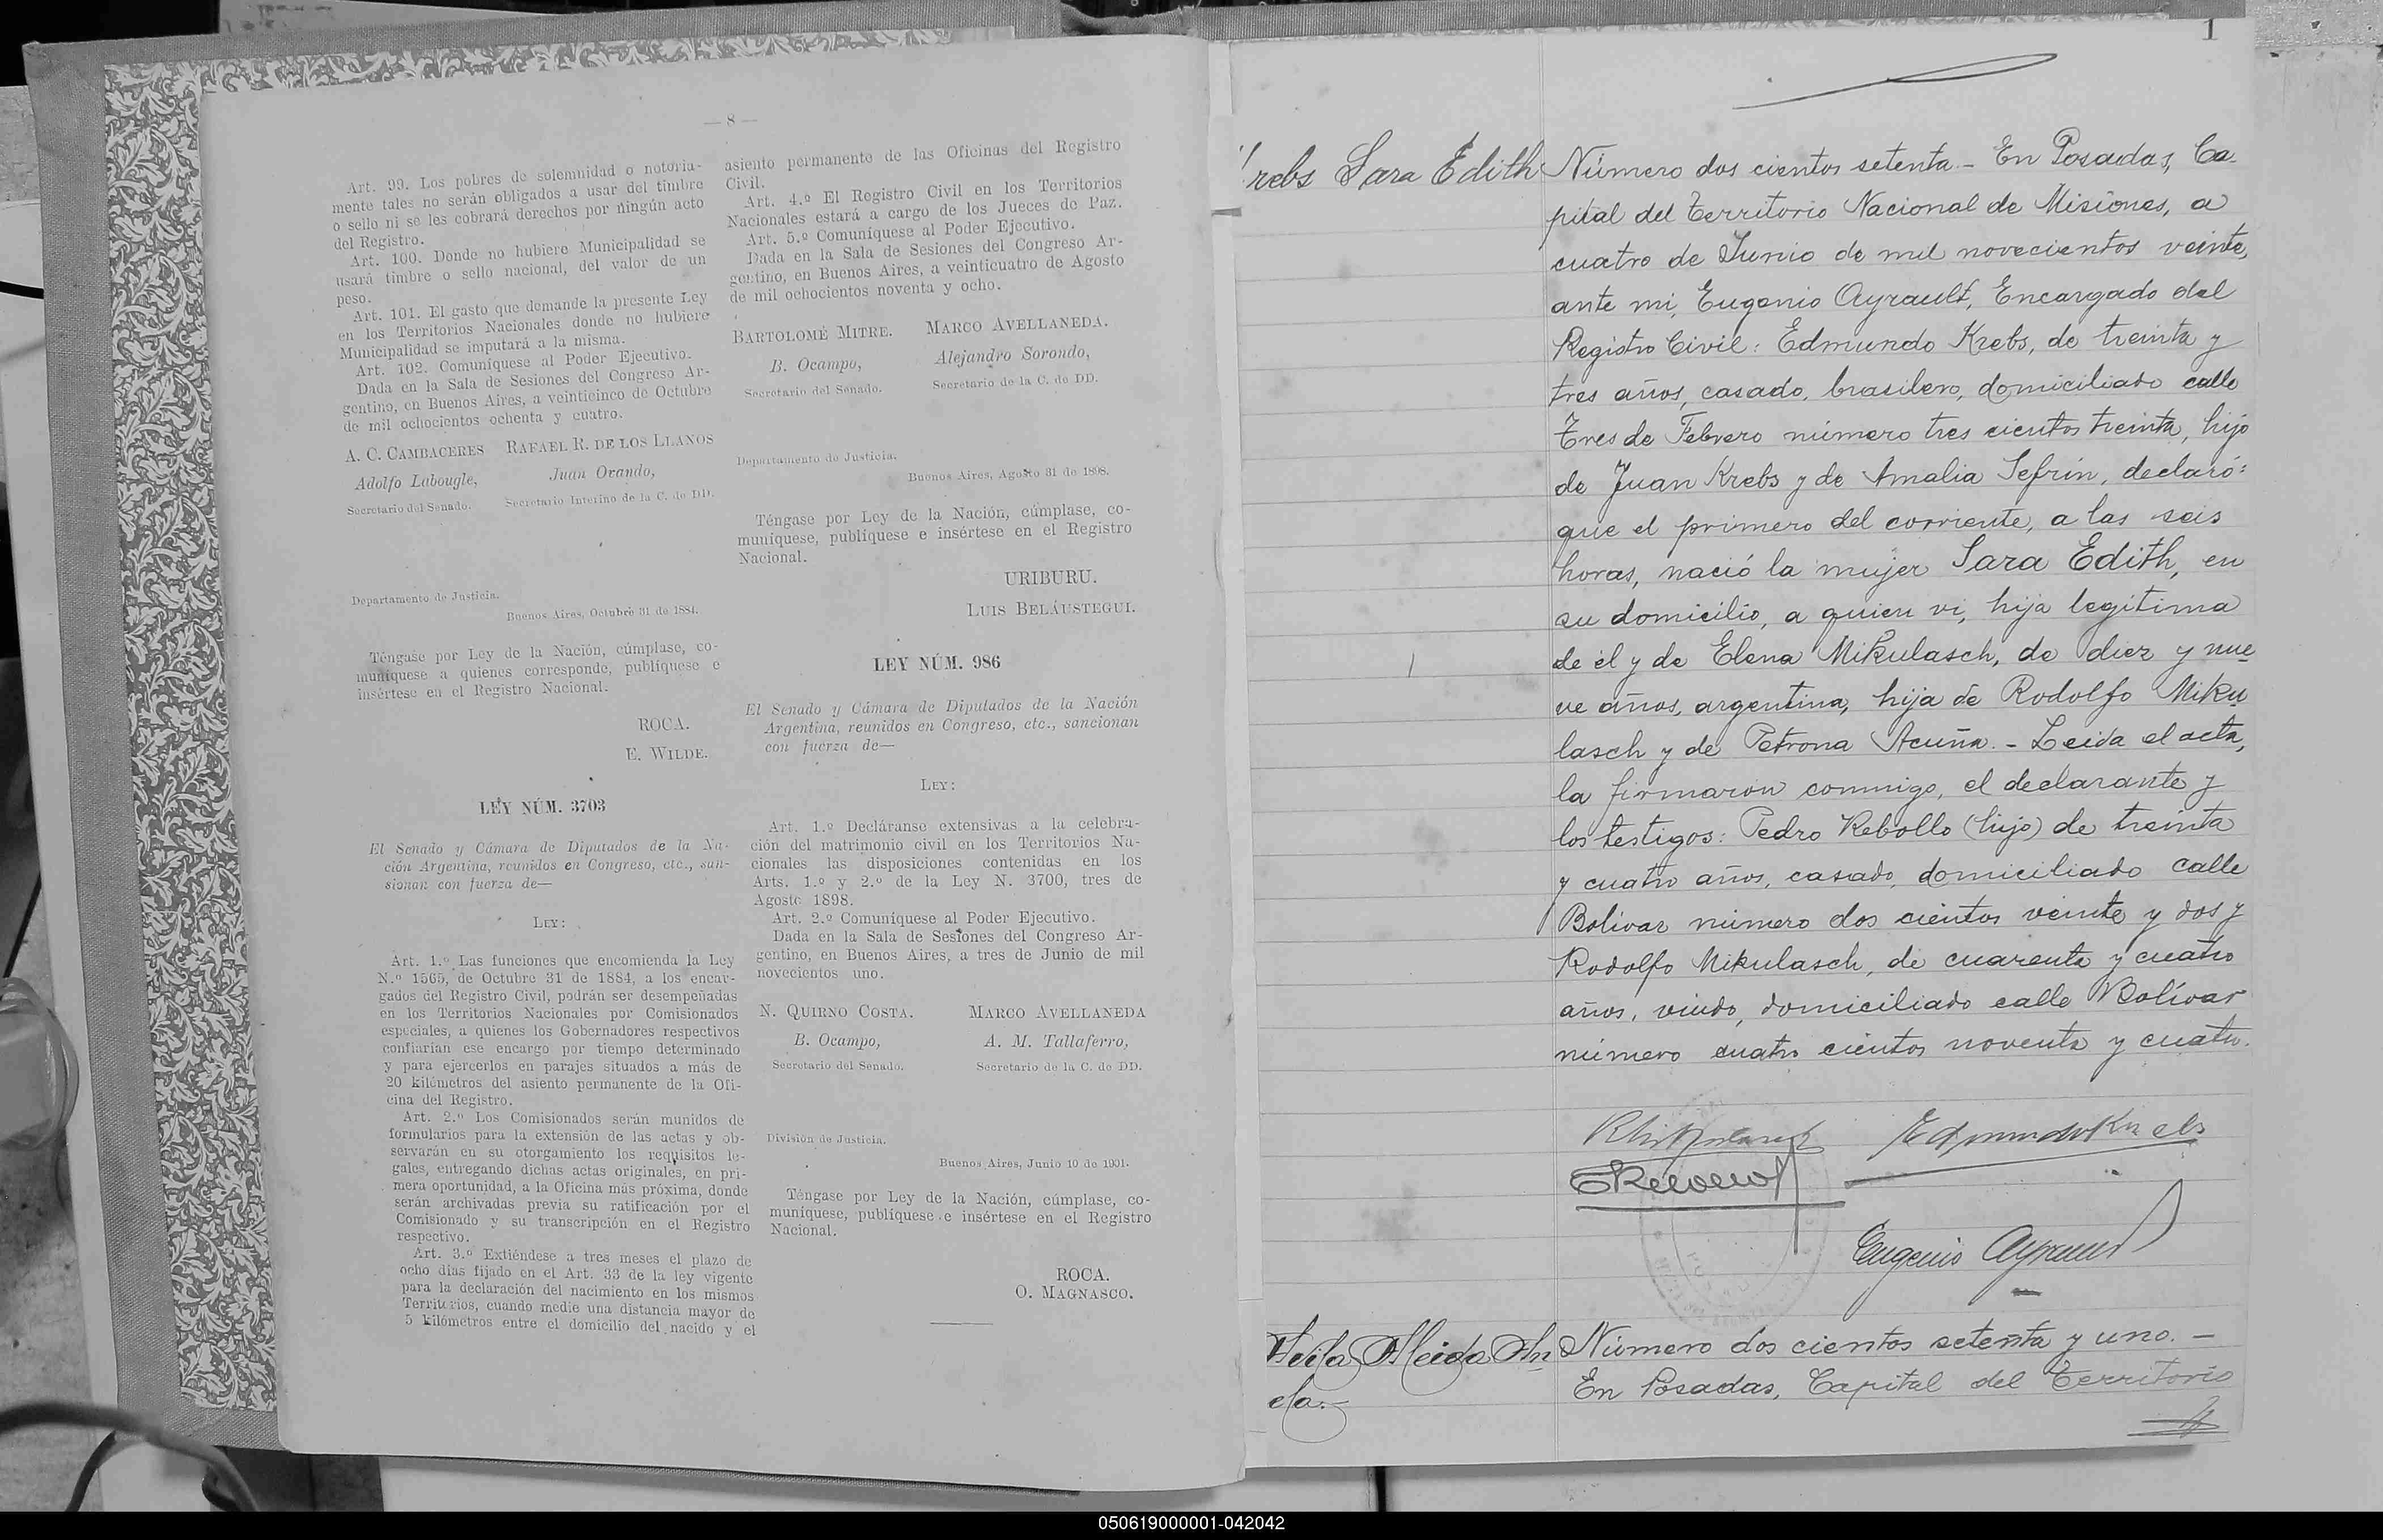 — 8 —
Art. 99. Los pobres de solemnidad o notoria-
mente tales no serán obligados a usar del timbre
o sello ni se les cobrará derechos por ningún acto
del Registro.
Art. 100. Donde no hubiere Municipalidad se
usará timbre o sello nacional, del valor de un
peso.
Art. 101. El gasto que demande la presente Ley
en los Territorios Nacionales donde no hubiere
Municipalidad se imputará a la misma.
Art. 102. Comuníquese al Poder Ejecutivo.
Dada en la Sala de Sesiones del Congreso Ar-
gentino, en Buenos Aires, a veinticinco de Octubre
de mil ochocientos ochenta y cuatro.
A. C. CAMBACERES RAFAEL R. DE LOS LLANOS
Adolfo Labougle, Juan Ovando,
Secretario del Senado. Secretario Interino de la C. de DD.
Departamento de Justicia.
Buenos Aires, Octubre 31 de 1884.
Téngase por Ley de la Nación, cúmplase, co-
muníquese a quienes corresponde, publíquese e
insértese en el Registro Nacional.
ROCA.
E. WILDE.
LEY NÚM. 3703
El Senado y Cámara de Diputados de la Na-
ción Argentina, reunidos en Congreso, etc., san-
sionan con fuerza de—
LEY:
Art. 1.º Las funciones que encomienda la Ley
N.º 1565, de Octubre 31 de 1884, a los encar-
gados del Registro Civil, podrán ser desempeñadas
en los Territorios Nacionales por Comisionados
especiales, a quienes los Gobernadores respectivos
confiarían ese encargo por tiempo determinado
y para ejercerlos en parajes situados a más de
20 kilómetros del asiento permanente de la Ofi-
cina del Registro.
Art. 2.º Los Comisionados serán munidos de
formularios para la extensión de las actas y ob-
servarán en su otorgamiento los requisitos le-
gales, entregando dichas actas originales, en pri-
mera oportunidad, a la Oficina más próxima, donde
serán archivadas previa su ratificación por el
Comisionado y su transcripción en el Registro
respectivo.
Art. 3.º Extiéndese a tres meses el plazo de
ocho días fijado en el Art. 33 de la ley vigente
para la declaración del nacimiento en los mismos
Territorios, cuando medie una distancia mayor de
5 kilómetros entre el domicilio del nacido y el
asiento permanente de las Oficinas del Registro
Civil.
Art. 4.º El Registro Civil en los Territorios
Nacionales estará a cargo de los Jueces de Paz.
Art. 5.º Comuníquese al Poder Ejecutivo.
Dada en la Sala de Sesiones del Congreso Ar-
gentino, en Buenos Aires, a veinticuatro de Agosto
de mil ochocientos noventa y ocho.
BARTOLOMÉ MITRE. MARCO AVELLANEDA.
B. Ocampo, Alejandro Sorondo,
Secretario del Senado. Secretario de la C. de DD.
Departamento de Justicia.
Buenos Aires, Agosto 31 de 1898.
Téngase por Ley de la Nación, cúmplase, co-
muníquese, publíquese e insértese en el Registro
Nacional.
URIBURU.
LUIS BELÁUSTEGUI.
LEY NÚM. 986
El Senado y Cámara de Diputados de la Nación
Argentina, reunidos en Congreso, etc., sancionan
con fuerza de—
LEY:
Art. 1.º Decláranse extensivas a la celebra-
ción del matrimonio civil en los Territorios Na-
cionales las disposiciones contenidas en los
Arts. 1.º y 2.º de la Ley N. 3700, tres de
Agosto 1898.
Art. 2.º Comuníquese al Poder Ejecutivo.
Dada en la Sala de Sesiones del Congreso Ar-
gentino, en Buenos Aires, a tres de Junio de mil
novecientos uno.
N. QUIRNO COSTA. MARCO AVELLANEDA
B. Ocampo, A. M. Tallaferro,
Secretario del Senado. Secretario de la C. de DD.
División de Justicia.
Buenos Aires, Junio 10 de 1901.
Téngase por Ley de la Nación, cúmplase, co-
muníquese, publíquese e insértese en el Registro
Nacional.
ROCA.
O. MAGNASCO.
1
Krebs Sara Edith
Número dos cientos setenta - En Posadas, Ca-
pital del Territorio Nacional de Misiones, a
cuatro de Junio de mil novecientos veinte,
ante mi, Eugenio Ayrault, Encargado del
Registro Civil: Edmundo Krebs, de treinta y
tres años, casado, brasilero, domiciliado calle
Tres de Febrero número tres cientos treinta, hijo
de Juan Krebs y de Amalia Sefrin, declaró:
que el primero del corriente, a las seis
horas, nació la mujer Sara Edith, en
su domicilio, a quien vi, hija legítima
de él y de Elena Mikulasch, de diez y nue
ve años, argentina, hija de Rodolfo Miku
lasch y de Petrona Acuña. - Leida el acta,
la firmaron conmigo, el declarante y
los testigos: Pedro Rebollo (hijo) de treinta
y cuatro años, casado, domiciliado calle
Bolívar número dos cientos veinte y dos y
Rodolfo Mikulasch, de cuarenta y cuatro
años, viudo, domiciliado calle Bolívar
número cuatro cientos noventa y cuatro.
Edmundo Krebs
Eugenio Ayrault
Número dos cientos setenta y uno. -
En Posadas, Capital del Territorio
050619000001-042042